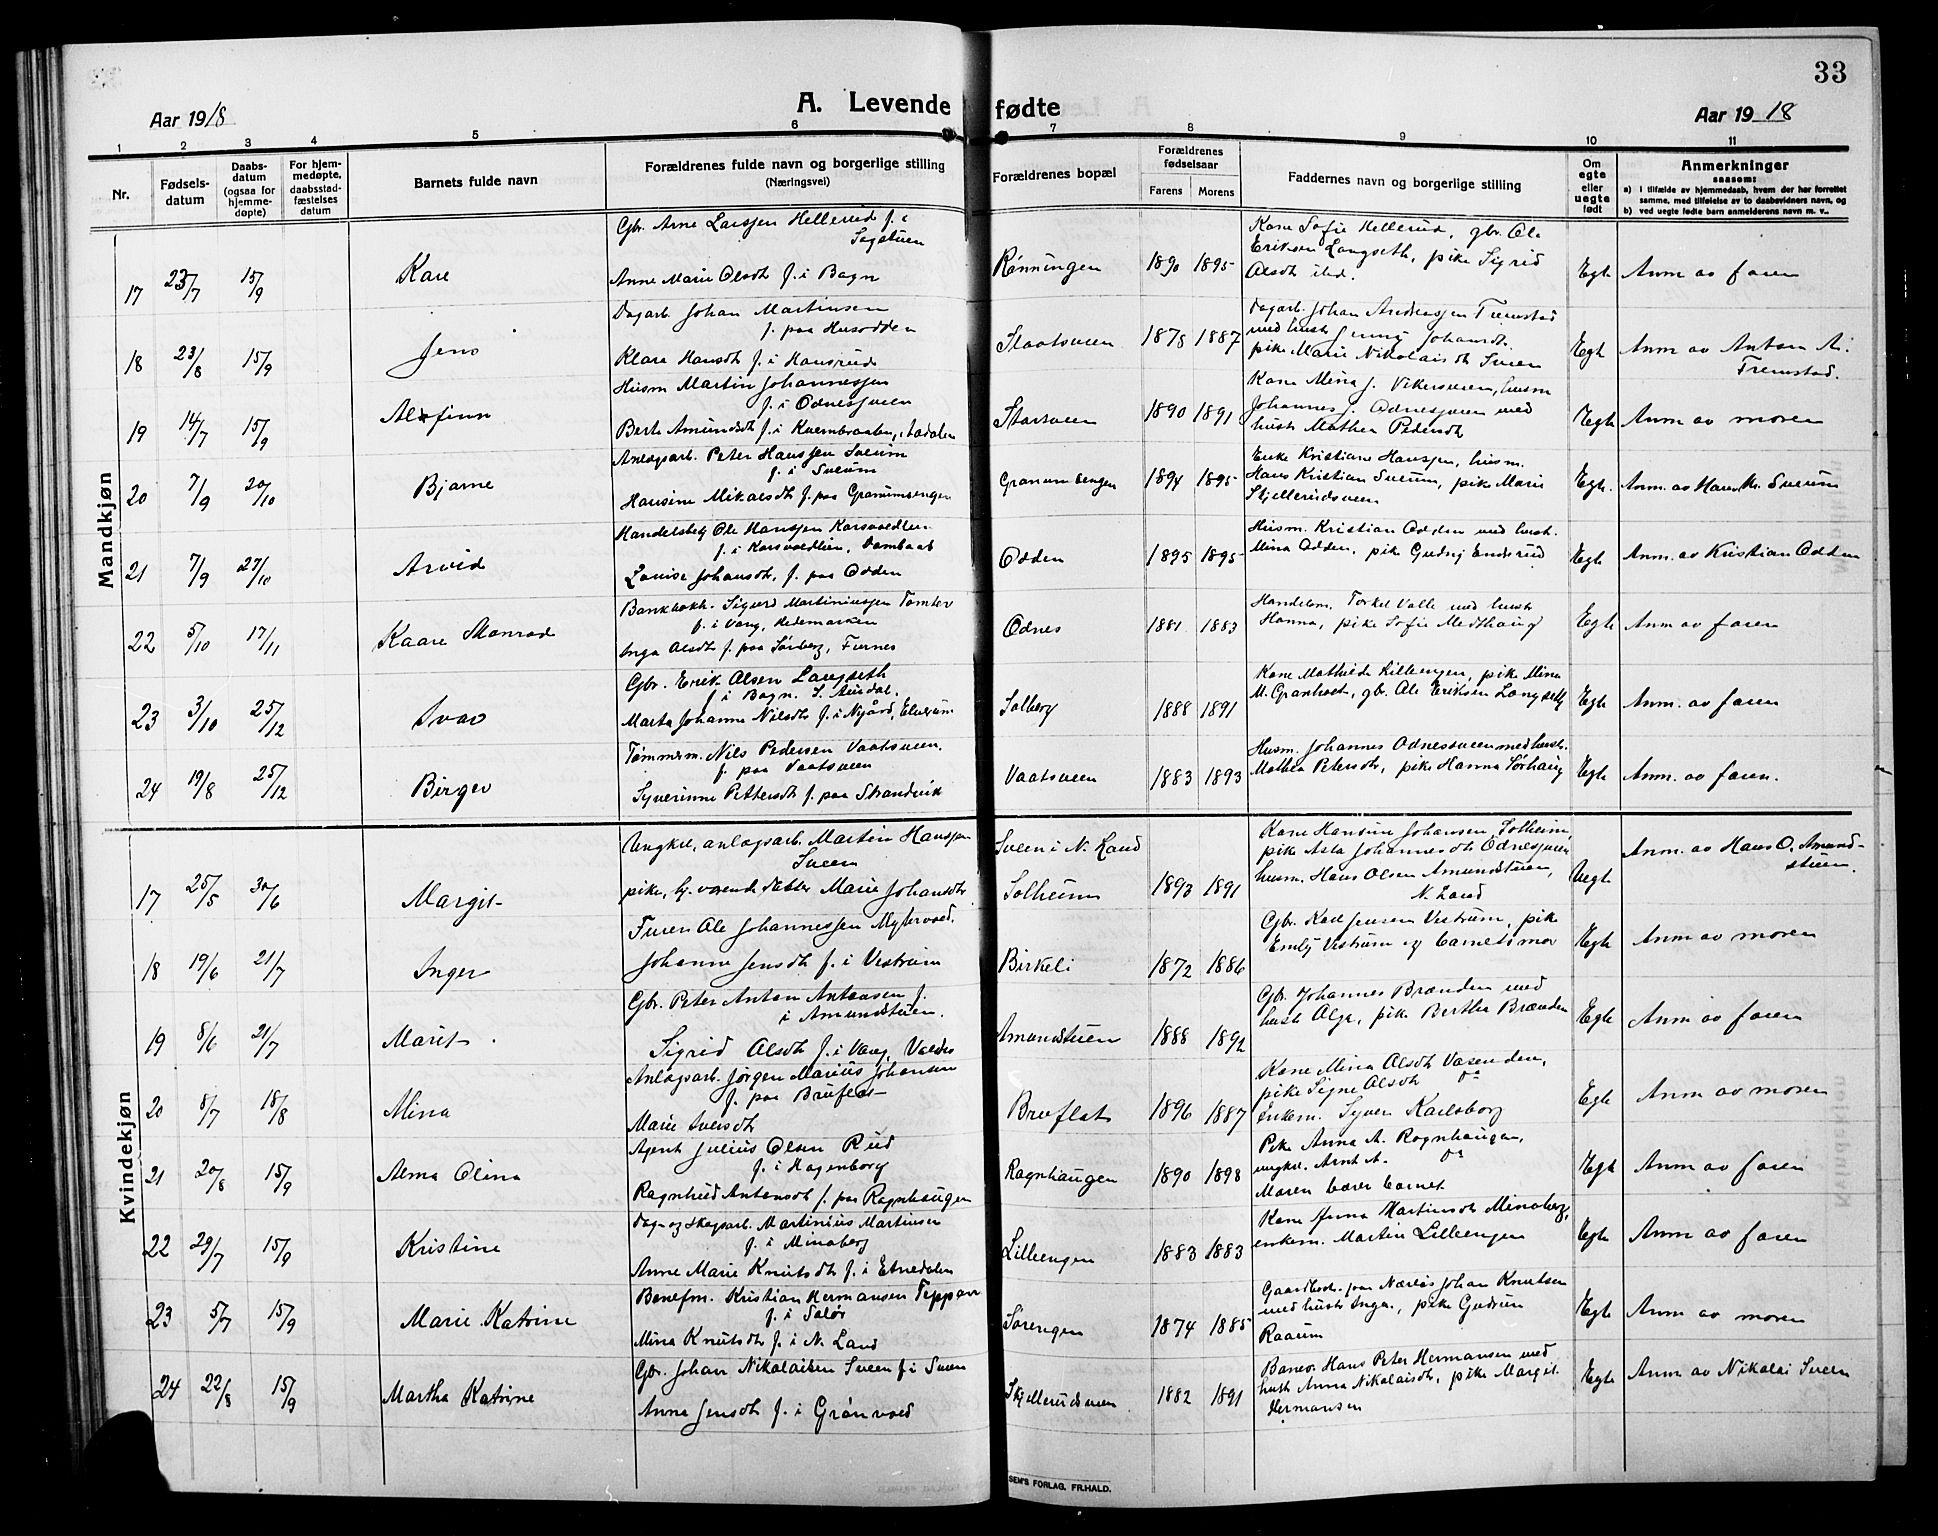 33
Aar 1918
A. Levende fødte
Aar 1918
1 2 3 4 5 6 7 8 9 10 11
Nr.
Fødsels-
datum
Daabs-
datum
(ogsaa for
hjemme-
døpte)
For hjem-
medøpte,
daabsstad-
fæstelses
datum
Barnets fulde navn
Forældrenes fulde navn og borgerlige stilling
(Næringsvei)
Forældrenes bopæl
Forældrenes
fødselsaar
Farens Morens
Faddernes navn og borgerlige stilling
Om
egte
eller
uegte
født
Anmerkninger
saasom:
a) i tilfælde av hjemmedaab, hvem der har forrettet
samme, med tilføielse av to daabsvidners navn, og
b) ved uegte fødte barn anmelderens navn m. v..
Mandkjøn
17 23/7 15/9 Kare
Gbr. Arne Larssen Hellerud f. i
Sagstuen
Anne Marie Olsdt f. i Bagn
Rønningen 1890 1895
Kone Sofie Hellerud, gbr. Ole
Eriksen Langseth, pike Sigrid
Olsdt ibid.
Egte Anm av faren
18 23/8 15/9 Jens
Dagarb. Johan Martinsen
f. paa Husodden
Klara Hansdt f. i Hansrud
Staatsveen 1878 1887
Dagarb. Johan Andreassen Fremstad
med hustr Jenny Johansdt.
pike Marie Nikolaisdt Sveen
Egte Anm av Anton A.
Fremstad.
19 14/7 15/9 Alfinn
Husm Martin Johannessen
f. i Odnessveen
Berte Amundsdt f. i Kvernbraaten, Aadalen
1890 1891
Kone Mina f. Vikersveen, husm
Johannes f. Odnessveen med
hustr Mathea Pedersdt
Egte Anm av moren
20 7/9 20/10 Bjarne
Anlægsarb. Peter Hanssen Sveum
f. i Sveum
Hansine Mikalsdt f. paa Granumsengen
Granumsengen 1894 1895
Enke Kristiane Hanssen, husm.
Hans Kristian Sveum, pike Marie
Skjellerudsveen
Egte. Anm. av Hans Kr. Sveum
21 7/9 27/10 Arvid
Handelsbetj Ole Hanssen Korsvoldlien
f. i Korsvoldlien, Dombaas
Louise Johansdt, f. paa Odden
Odden 1895 1895
Husm. Kristian Odden med hust.
Mina Odden, pike Gudny Enderud
Egte Anm. av Kristian Odden
22 5/10 17/11 Kaare Monrad
Bankbokh. Sigurd Martiniussen Tomter
f. i Vang, Hedemarken
Inga Olsdt f. paa Sørberg, Furnes
Odnes 1881 1883
Handelsm. Torkel Valle med hustr
Hanna, pike Sofie Medthaug
Egte Anm av faren
23 3/10 25/12 Ivar
Gbr. Erik Olsen Langseth
f. i Bagn. S. Aurdal.
Marta Johanne Nilsdt f. i Nygård, Elverum
Solberg 1888 1891
Kone Mathilde Lilleengen, pike Mina
M. Granheet, gbr. Ole Eriksen Langseth
Egte Anm. av faren
24 19/8 25/12 Birger
Tømmerm. Nils Pedersen Vaatsveen.
f. paa Vaatsveen
Syverinne Pettersdt f. paa Strandvik
Vaatsveen 1883 1893
Husm. Johannes Odnessveen med hustr.
Mathea Petersdt, pike Hanna Sørhaug
Egte Anm. av faren.
Kvindekjøn
17 25/5 30/6 Margit
Ungkar, anlægsarb. Martin Hanssen
Sveen
pike, hj. værende datter Marie Johansdt
Sveen i N. Land
Solheim 1893 1891
Kone Hansine Johansen Solheim,
pike Asta Johannesdt Odnessveen
husm. Hans Olsen Amundstuen,
N. Land
Uegte Anm. av Hans O. Amund-
stuen.
18 19/6 21/7 Inger
Furer Ole Johannessen Myhrvold.
Johanne Jensdt f. i Vestrum
Birkeli 1872 1886
Gbr. Karl Jensen Vestrum, pike
Emly Vestrum og barnets mor
Egte Anm av moren
19 8/6 21/7 Marit
Gbr. Peter Anton Antonsen f.
i Amundstuen.
Sigrid Olsdt f. i Vang, Valdres
Amundstuen 1888 1892
Gbr. Johannes Brænden med
hustr Olga, pike Bertha Brænden
Egte Anm av faren
20 8/7 18/8 Mina
Anlægsarb. Jørgen Marius Johansen
f. paa Bruflat
Marie Iversdt
Bruflat 1896 1887
Kone Mina Olsdt Vasenden,
pike Signe Olsdt do
Enkem. Syver Karlsborg
Egte Anm av moren
21 20/8 15/9 Alma Olina
Agent Julius Olsen Rud
f. i Hagenborg
Ragnhild Antonsdt f. paa Rognhaugen
Rognhaugen 1890 1898
Pike Anna A. Rognhaugen,
ungkar. Arnt A. do
Moren bærer barnet
Egte Anm av faren
22 29/7 15/9 Kristine
Dag- og skogsarb. Martinius Martinsen
f. i Minaberg
Anne Marie Knutsdt f. i Etnedalen
Lilleengen 1883 1883
Kone Anna Martinsdt Minaberg,
enkem. Martin Lilleengen
Egte Anm av faren
23 5/7 15/9 Marie Katrine
Banefm. Kristian Hermansen Teppen
f. i Solør
Mina Knutsdt f. i N. Land
Sørengen 1874 1885
Gaardbest. paa Næraas Johan Knutsen
med hustr Inga., pike Gudrun
Raaum
Egte Anm av moren
24 22/8 15/9 Martha Katrine
Gbr. Johan Nikolaisen Sveen f. i Sveen
Anna Jensdt f. i Grønvold
Skjellerudsveen 1882 1891
Banev. Hans Peter Hermansen med
hustr Anna Nikolaisdt, pike Margit
Hermansen
Egte Anm av Nikolai Sveen
SEM'S FORLAG, FR.HALD.